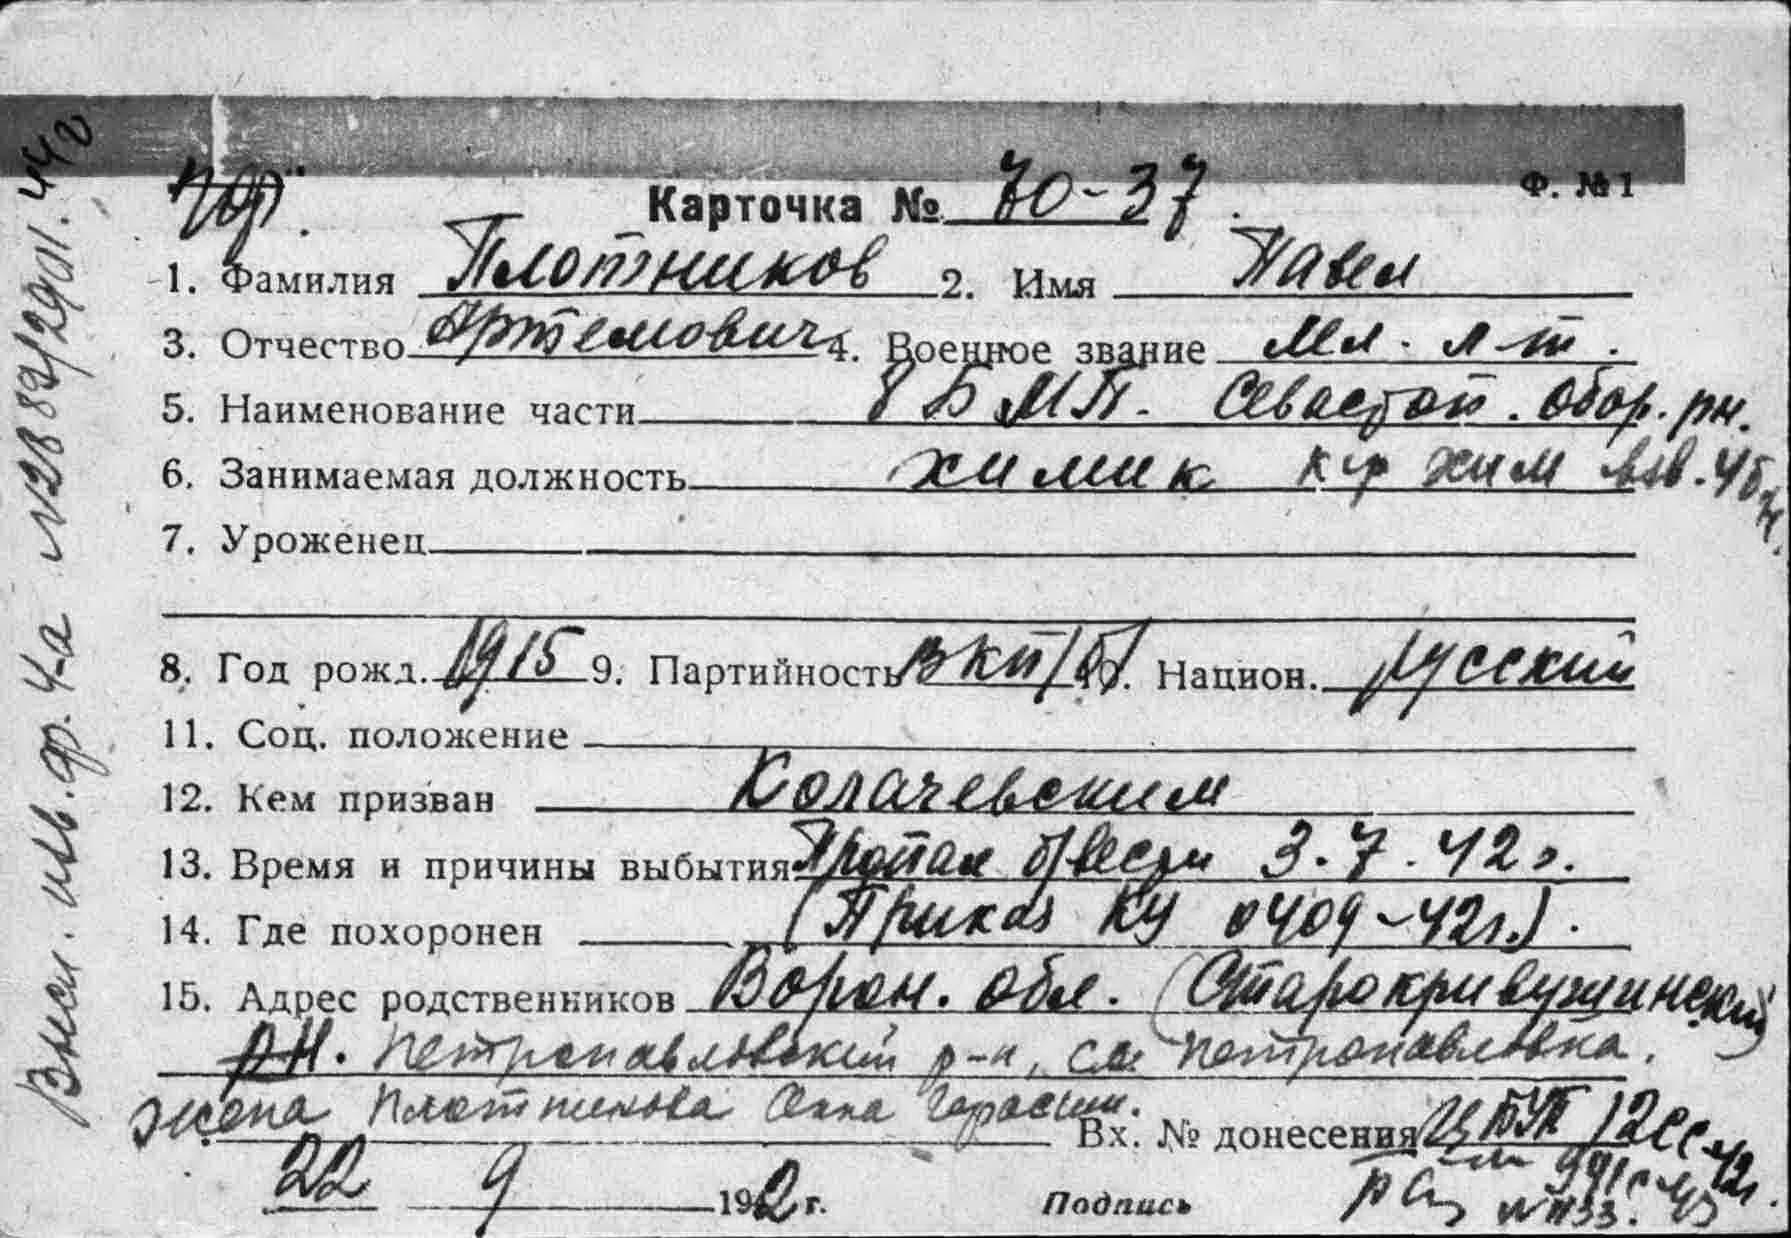 Карточка № 70-37. Ф. № 1
1. Фамилия Плотников 2. Имя Павел
3. Отчество Артемович 4. Военное звание Мл. л-т.
5. Наименование части 8 БМП. Севастоп. обор. рн.
6. Занимаемая должность химик к-р хим взв.
7. Уроженец
8. Год рожд. 1915 9. Партийность ВКП/б/ 10. Национ. русский
11. Соц. положение
12. Кем призван Колачевским
13. Время и причины выбытия Пропал б/вести 3.7.42г.
14. Где похоронен (Приказ КУ 0409-42г.).
15. Адрес родственников Ворон. обл. (Старокривушинский
рн. Петропавловский р-н, сл. Петропавловка.
жена Плотникова Анна Герасим.
Вх. № донесения 12сс 42г.
22 9 1942 г. Подпись